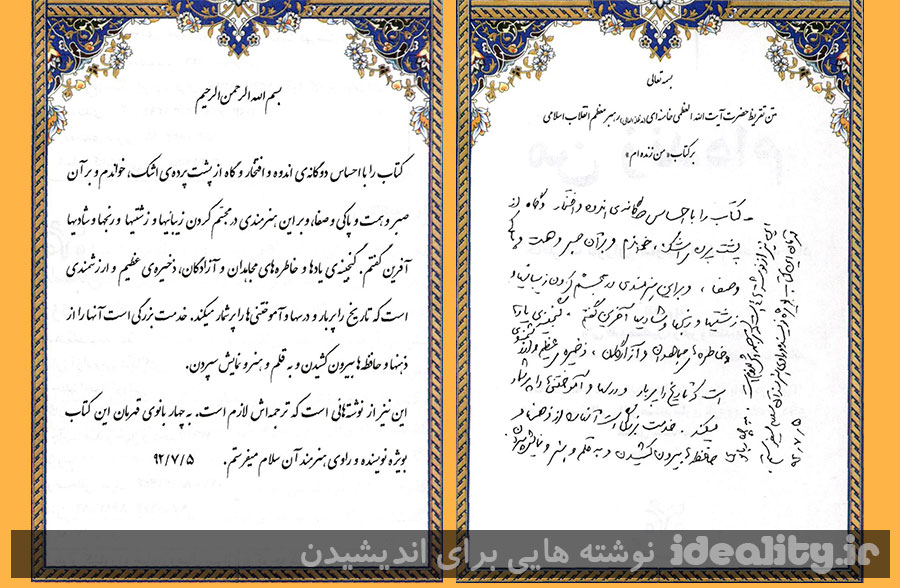 بسمه تعالی
متن تقریظ حضرت آیت الله العظمی خامنه‌ای (مدظله العالی) رهبر معظم انقلاب اسلامی
بر کتاب «من زنده ام»
کتاب را با احساس دوگانه‌ی اندوه و افتخار و گاه از
پشت پرده‌ی اشک، خواندم و بر آن صبر و همت و پاکی
و صفا، و بر این هنرمندی در مجسّم کردن زیبائیها و
زشتیها و رنجها و شادیها آفرین گفتم. گنجینه‌ی یادها
و خاطره‌های مجاهدان و آزادگان، ذخیره‌ی عظیم و ارزشمندی
است که تاریخ را پربار و درسها و آموختنی‌ها را پرشمار
میکند. خدمت بزرگی است آنها را از ذهنها و
حافظه‌ها بیرون کشیدن و به قلم و هنر و نمایش سپردن.
این نیز از نوشته‌هائی است که ترجمه‌اش لازم است. به چهار بانوی
قهرمان این کتاب بویژه نویسنده و راوی هنرمند آن سلام میفرستم.
۹۲/۷/۵
بسم الله الرحمن الرحیم
کتاب را با احساس دوگانه‌ی اندوه و افتخار و گاه از پشت پرده‌ی اشک، خواندم و بر آن
صبر و همت و پاکی و صفا، و بر این هنرمندی در مجسّم کردن زیبائیها و زشتیها و رنجها و شادیها
آفرین گفتم. گنجینه‌ی یادها و خاطره‌های مجاهدان و آزادگان، ذخیره‌ی عظیم و ارزشمندی
است که تاریخ را پربار و درسها و آموختنی‌ها را پرشمار میکند. خدمت بزرگی است آنها را از
ذهنها و حافظه‌ها بیرون کشیدن و به قلم و هنر و نمایش سپردن.
این نیز از نوشته‌هائی است که ترجمه‌اش لازم است. به چهار بانوی قهرمان این کتاب
بویژه نویسنده و راوی هنرمند آن سلام میفرستم. ۹۲/۷/۵
ideality.ir نوشته هایی برای اندیشیدن